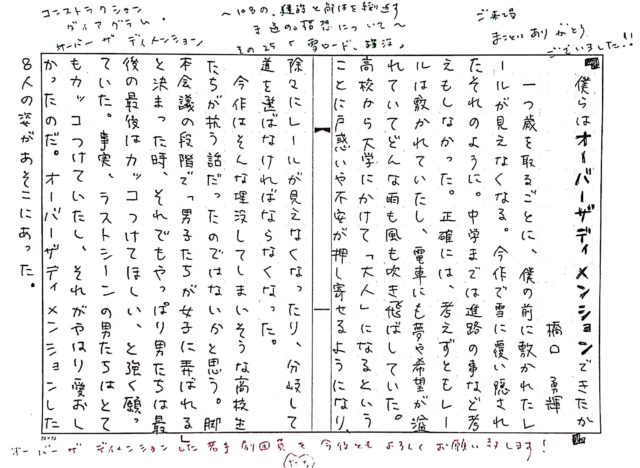 コンストラクション
ダイアグラム
オーバー ザ ディメンション
〜10名の、建設と解体を繰返す
その25「雪ロード、
ご来場
まことに ありがとう
ございました!!
僕らはオーバーザディメンションできたか
橋口 勇輝
一つ歳を取るごとに、僕の前に敷かれたレ
ールが見えなくなる。今作で雪に覆い隠され
たそれのように。中学までは進路の事など考
えもしなかった。正確には、考えずともレー
ルは敷かれていたし、電車にも夢や希望が溢
れていてどんな雨も風も吹き飛ばしていた。
高校から大学にかけて「大人」になるという
ことに戸惑いや不安が押し寄せるようになり、
除々にレールが見えなくなったり、分岐して
道を選ばなければならなくなった。
今作はそんな埋没してしまいそうな高校生
たちが抗う話だったのではないかと思う。脚
本会議の段階で「男子たちが女子に弄ばれる」
と決まった時、それでもやっぱり男たちは最
後の最後はカッコつけてほしい、と強く願っ
ていた。事実、ラストシーンの男たちはとて
もカッコつけていたし、それがやはり愛おし
かったのだ。オーバーザディメンションした
8人の姿があそこにあった。
オーバー ザ ディメンションした 若手 劇団員を 今後とも よろしく お願い致します!